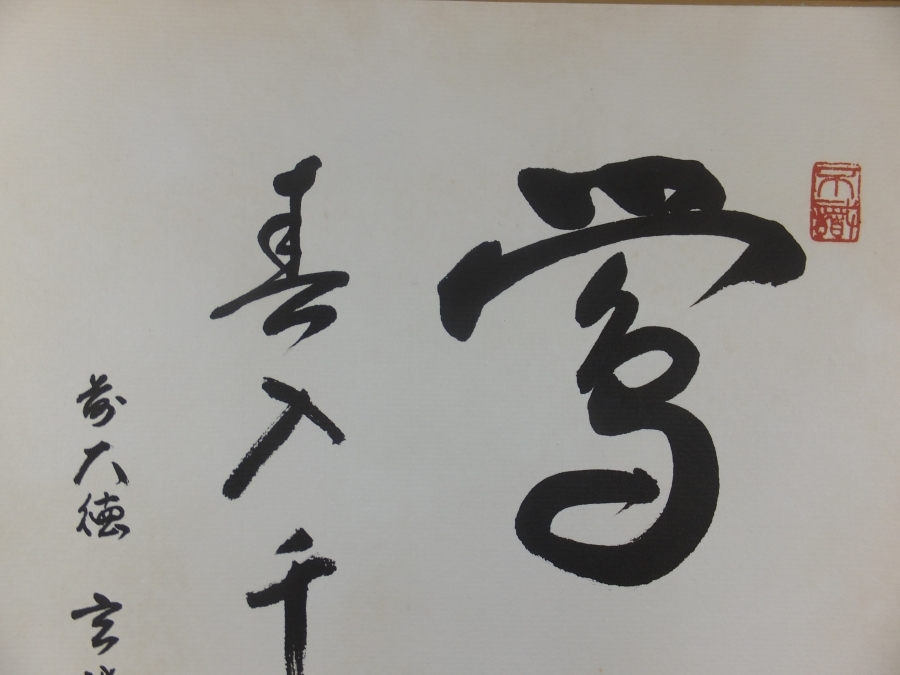 鶯
春入千
前大徳 玄